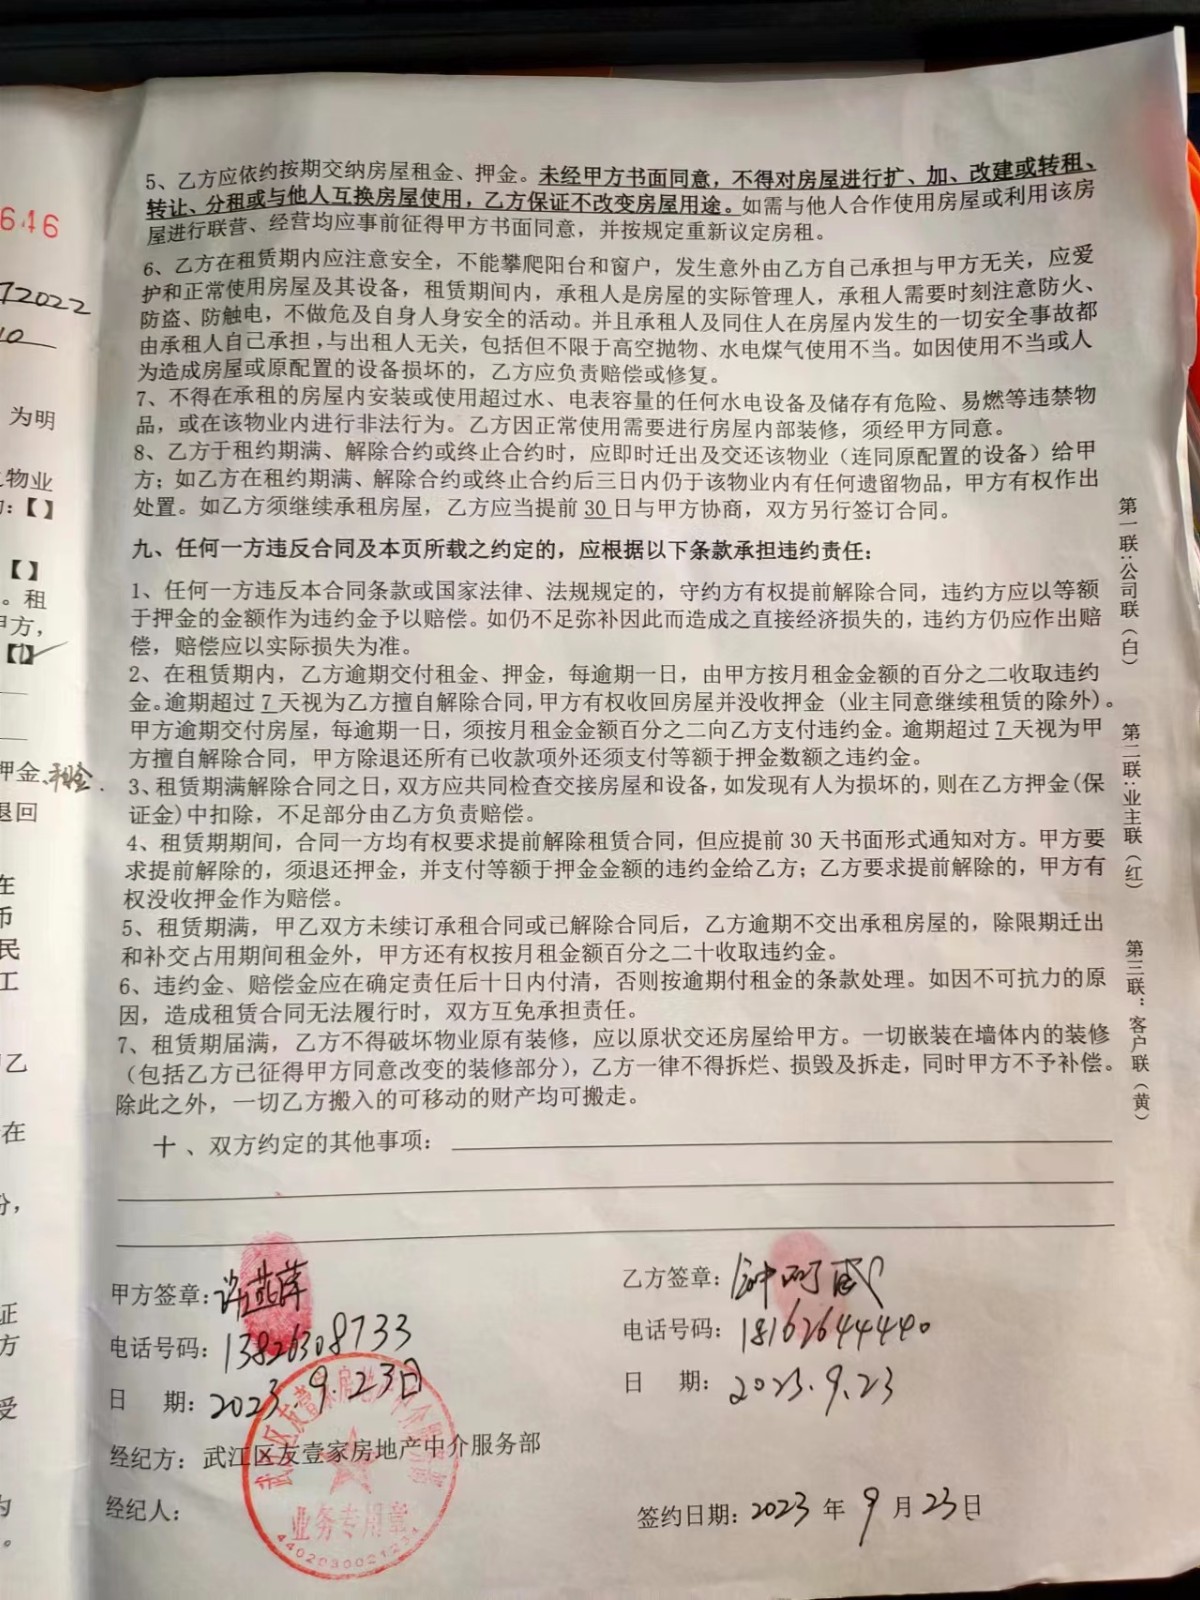 646
72022
10
为明
物业
:【】
【】
。租
甲方,
【】
押金、租金.
退回
在
币
民
工
乙
在
份,
证
方
受
为
。
5、乙方应依约按期交纳房屋租金、押金。未经甲方书面同意，不得对房屋进行扩、加、改建或转租、
转让、分租或与他人互换房屋使用，乙方保证不改变房屋用途。如需与他人合作使用房屋或利用该房
屋进行联营、经营均应事前征得甲方书面同意，并按规定重新议定房租。
6、乙方在租赁期内应注意安全，不能攀爬阳台和窗户，发生意外由乙方自己承担与甲方无关，应爱
护和正常使用房屋及其设备，租赁期间内，承租人是房屋的实际管理人，承租人需要时刻注意防火、
防盗、防触电，不做危及自身人身安全的活动。并且承租人及同住人在房屋内发生的一切安全事故都
由承租人自己承担，与出租人无关，包括但不限于高空抛物、水电煤气使用不当。如因使用不当或人
为造成房屋或原配置的设备损坏的，乙方应负责赔偿或修复。
7、不得在承租的房屋内安装或使用超过水、电表容量的任何水电设备及储存有危险、易燃等违禁物
品，或在该物业内进行非法行为。乙方因正常使用需要进行房屋内部装修，须经甲方同意。
8、乙方于租约期满、解除合约或终止合约时，应即时迁出及交还该物业（连同原配置的设备）给甲
方；如乙方在租约期满、解除合约或终止合约后三日内仍于该物业内有任何遗留物品，甲方有权作出
处置。如乙方须继续承租房屋，乙方应当提前 30 日与甲方协商，双方另行签订合同。
九、任何一方违反合同及本页所载之约定的，应根据以下条款承担违约责任：
1、任何一方违反本合同条款或国家法律、法规规定的，守约方有权提前解除合同，违约方应以等额
于押金的金额作为违约金予以赔偿。如仍不足弥补因此而造成之直接经济损失的，违约方仍应作出赔
偿，赔偿应以实际损失为准。
2、在租赁期内，乙方逾期交付租金、押金，每逾期一日，由甲方按月租金金额的百分之二收取违约
金。逾期超过 7 天视为乙方擅自解除合同，甲方有权收回房屋并没收押金（业主同意继续租赁的除外）。
甲方逾期交付房屋，每逾期一日，须按月租金金额百分之二向乙方支付违约金。逾期超过 7 天视为甲
方擅自解除合同，甲方除退还所有已收款项外还须支付等额于押金数额之违约金。
3、租赁期满解除合同之日，双方应共同检查交接房屋和设备，如发现有人为损坏的，则在乙方押金(保
证金)中扣除，不足部分由乙方负责赔偿。
4、租赁期期间，合同一方均有权要求提前解除租赁合同，但应提前 30 天书面形式通知对方。甲方要
求提前解除的，须退还押金，并支付等额于押金金额的违约金给乙方；乙方要求提前解除的，甲方有
权没收押金作为赔偿。
5、租赁期满，甲乙双方未续订承租合同或已解除合同后，乙方逾期不交出承租房屋的，除限期迁出
和补交占用期间租金外，甲方还有权按月租金额百分之二十收取违约金。
6、违约金、赔偿金应在确定责任后十日内付清，否则按逾期付租金的条款处理。如因不可抗力的原
因，造成租赁合同无法履行时，双方互免承担责任。
7、租赁期届满，乙方不得破坏物业原有装修，应以原状交还房屋给甲方。一切嵌装在墙体内的装修
（包括乙方已征得甲方同意改变的装修部分），乙方一律不得拆烂、损毁及拆走，同时甲方不予补偿。
除此之外，一切乙方搬入的可移动的财产均可搬走。
十、双方约定的其他事项：
甲方签章：许燕萍
电话号码：13826308733
日 期：2023.9.23日
经纪方：武江区友壹家房地产中介服务部
经纪人：
乙方签章：钟阿威
电话号码：18162644440
日 期：2023.9.23
签约日期：2023年9月23日
武江区友壹家房地产中介服务部
业务专用章
第一联：公司联（白）
第二联：业主联（红）
第三联：客户联（黄）